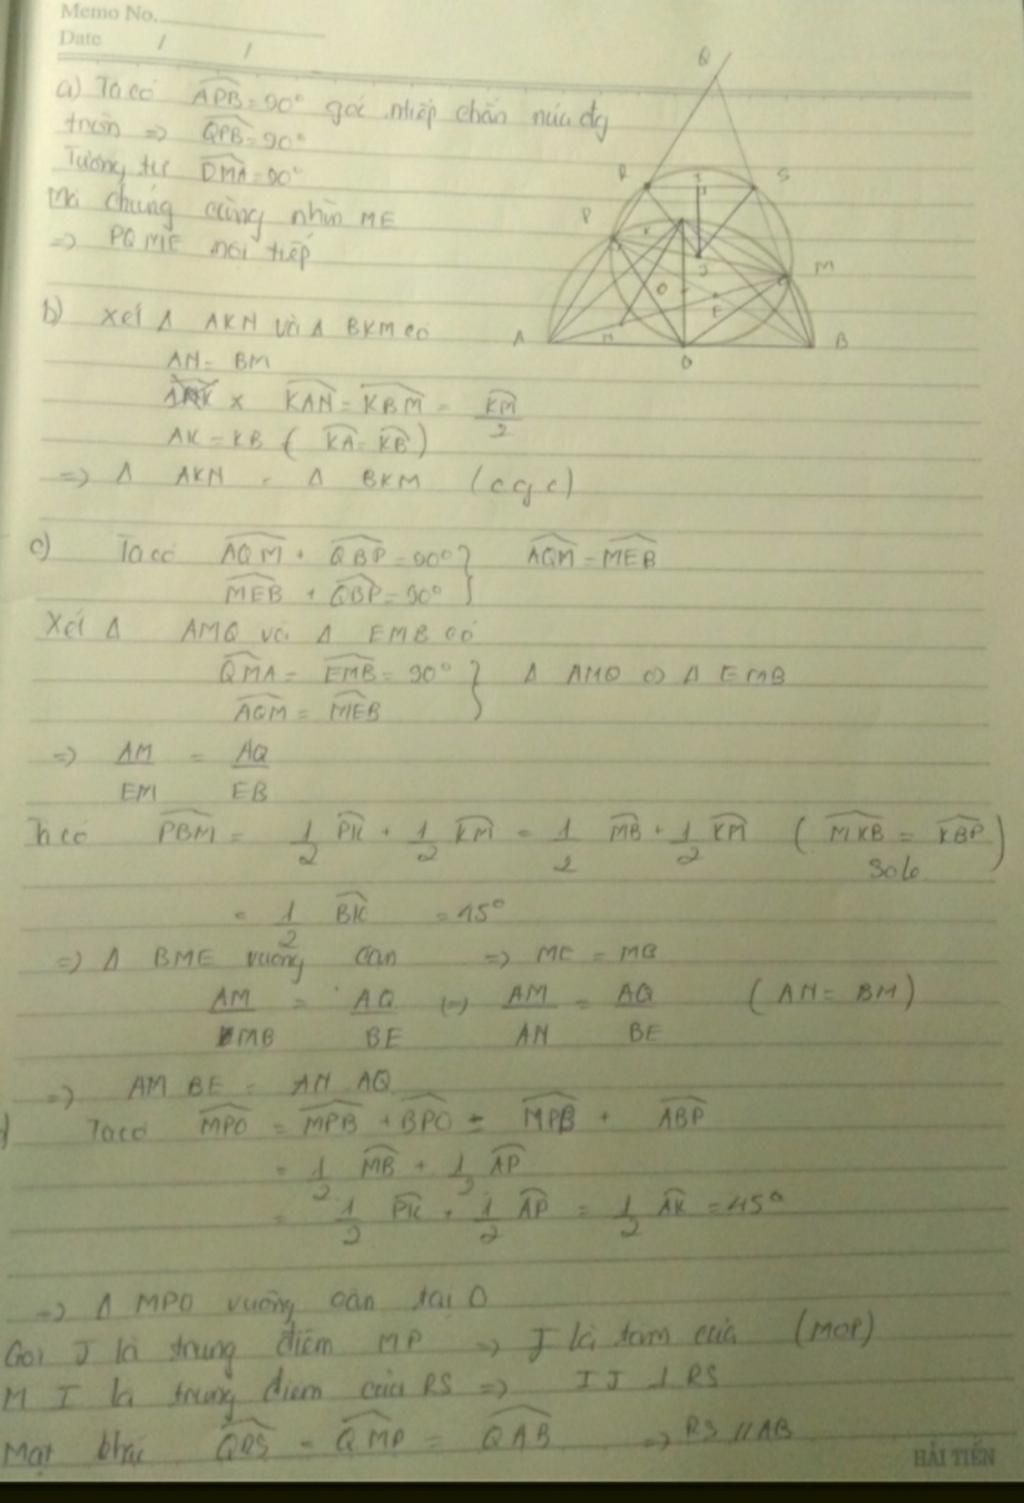 Memo No.
Date / /
a) Ta có APB = 90° góc nhiếp chắn nửa đg
tròn => QPB = 90°
Tương tự DMA = 90°
Mà chúng cùng nhìn ME
=> PQME nội tiếp
b) Xét Δ AKN và Δ BKM có
AN = BM
x KAN = KBM = KM/2
AK = KB ( KA = KB )
=> Δ AKN = Δ BKM (c g c)
c) Ta có AQM + QBP = 90° } AQM = MEB
MEB + QBP = 90° }
Xét Δ AMQ và Δ EMB có
QMA = EMB = 90° } Δ AMQ ∽ Δ EMB
AQM = MEB }
=> AM/EM = AQ/EB
Ta có PBM = 1/2 PK + 1/2 KM = 1/2 MB + 1/2 KM ( MKB = KBP )
Sole
= 1/2 BK = 45°
=> Δ BME vuông cân => ME = MB
AM/MB = AQ/BE (=) AM/AN = AQ/BE ( AN = BM )
=> AM BE = AN AQ
Ta có MPO = MPB + BPO = MPB + ABP
= 1/2 MB + 1/2 AP
= 1/2 PK + 1/2 AP = 1/2 AK = 45°
=> Δ MPO vuông cân tại O
Gọi J là trung điểm MP => J là tâm của (MOP)
M I là trung điểm của RS => IJ ⊥ RS
Mặt khác QRS = QMP = QAB => RS // AB
HẢI TIẾN
Q
R
I
S
P
K
M
J
O
E
A
N
O
B